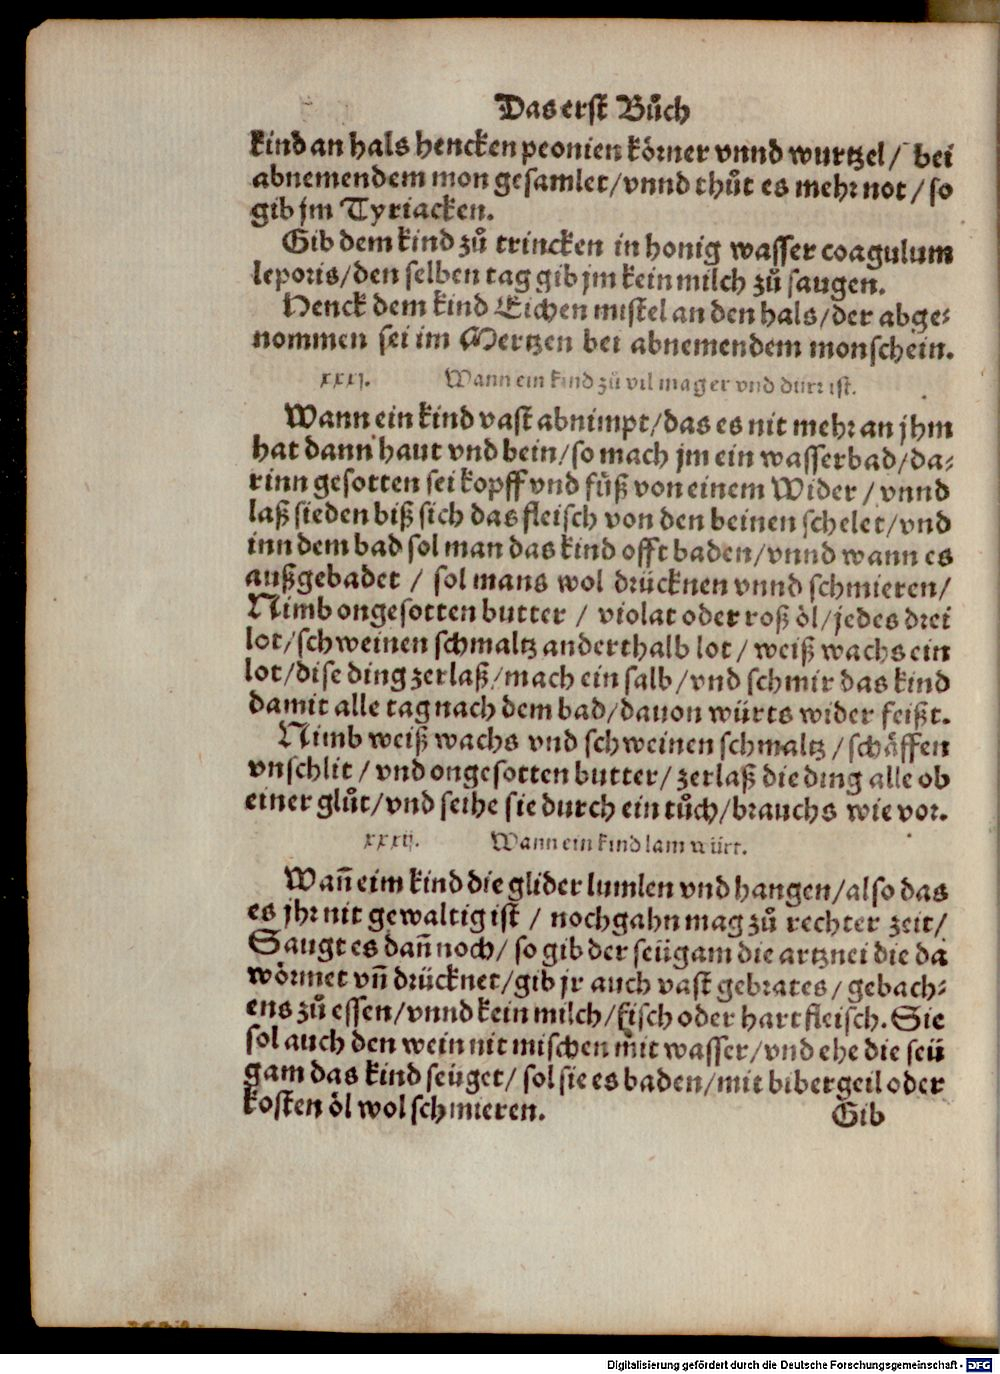 Das erst Bůch
kind an hals hencken peonien körner vnnd wurtzel / bei
abnemendem mon gesamlet / vnnd thůt es mehr not / so
gib jm Tyriacken.
Gib dem kind zů trincken in honig wasser coagulum
leporis / den selben tag gib jm kein milch zů saugen.
Henck dem kind Eichen mistel an den hals / der abge⸗
nommen sei im Mertzen bei abnemendem monschein.
xxxj. Wann ein kind zů vil mager vnd dürr ist.
Wann ein kind vast abnimpt / das es nit mehr an jhm
hat dann haut vnd bein / so mach jm ein wasserbad / da⸗
rinn gesotten sei kopff vnd füß von einem Wider / vnnd
laß sieden biß sich das fleisch von den beinen schelet / vnd
inn dem bad sol man das kind offt baden / vnnd wann es
außgebadet / sol mans wol drücknen vnnd schmieren /
Nimb ongesotten butter / violat oder roß öl / jedes drei
lot / schweinen schmaltz anderthalb lot / weiß wachs ein
lot / dise ding zerlaß / mach ein salb / vnd schmir das kind
damit alle tag nach dem bad / dauon würts wider feißt.
Nimb weiß wachs vnd schweinen schmaltz / schäffen
vnschlit / vnd ongesotten butter / zerlaß die ding alle ob
einer glůt / vnd seihe sie durch ein tůch / brauchs wie vor.
xxxij. Wann ein kind lam würt.
Wañ eim kind die glider lumlen vnd hangen / also das
es jhr nit gewaltig ist / noch gahn mag zů rechter zeit /
Saugt es dañ noch / so gib der seügam die artznei die da
wörmet vñ drücknet / gib jr auch vast gebrates / gebach⸗
ens zů essen / vnnd kein milch / fisch oder hart fleisch. Sie
sol auch den wein nit mischen mit wasser / vnd ehe die seü
gam das kind seüget / sol sie es baden / mit bibergeil oder
kosten öl wol schmieren.
Gib
Digitalisierung gefördert durch die Deutsche Forschungsgemeinschaft - DFG